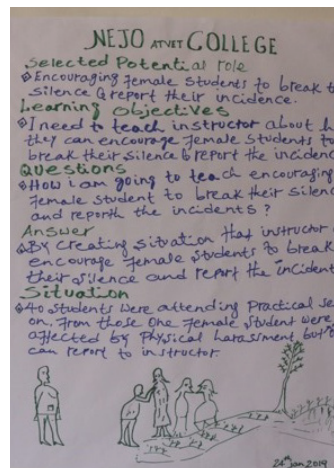 NEJO ATVET COLLEGE
Selected Potential role
Encouraging Female Students to break t
silence & report their incidence.
Learning objectives
I need to teach instructor about h
they can encourage Female Students to
break their silence & report the incidenc
Questions
How i am going to teach encouraging
Female student to break their silen
and reporth the incidents?
Answer
By creating situation that instructor
encourage Female students to break
their silence and report the incident
Situation
40 Students were attending Practical se
on, From those One Female Student were
affected by Physical harassment but
can report to instructor.
24th Jan 2019